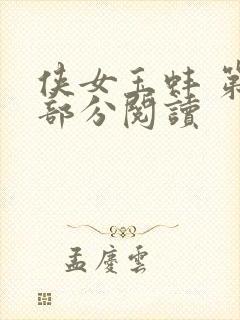 侠女玉蚌 第
部分阅讀
孟慶雲